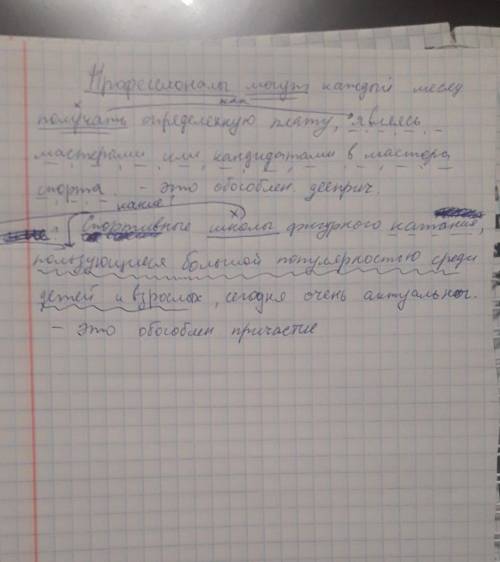 Профессионалы могут каждый месяц
как
получать определенную плату, являясь
мастерами или кандидатами в мастера
спорта. - это обособлен. дееприч.
какие?
Спортивные школы фигурного катания,
пользующиеся большой популярностью среди
детей и взрослых, сегодня очень актуальны.
- это обособлен причастие